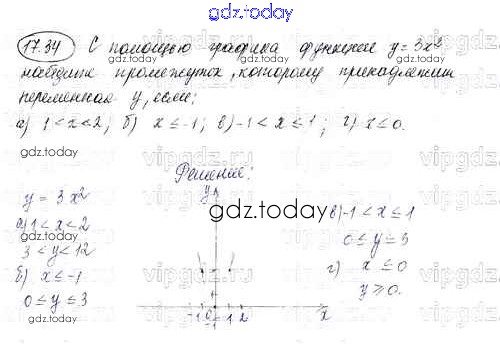 gdz.today
17.34 С помощью графика функции y = 3x²
найдите промежуток, которому принадлежит
переменная y, если:
а) 1 < x < 2; б) x ≤ -1; в) -1 < x ≤ 1; г) x ≤ 0.
gdz.today
Решение:
y = 3x²
а) 1 < x < 2
3 < y < 12
б) x ≤ -1
0 ≤ y ≤ 3
y
gdz.today
-1 0 1 2 x
-1
в) -1 < x ≤ 1
0 ≤ y ≤ 3
г) x ≤ 0
y ≥ 0.
gdz.today
gdz.today
vipgdz